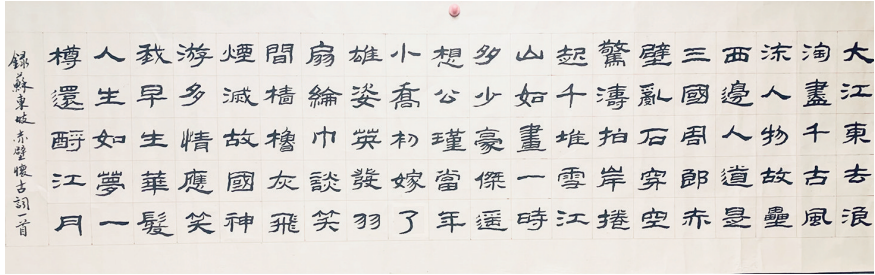 大江東去浪
淘盡千古風
流人物故壘
西邊人道是
三國周郎赤
壁亂石穿空
驚濤拍岸捲
起千堆雪江
山如畫一時
多少豪傑遥
想公瑾當年
小喬初嫁了
雄姿英發羽
扇綸巾談笑
間檣櫓灰飛
煙滅故國神
游多情應笑
我早生華髮
人生如夢一
樽還酹江月
録蘇東坡赤壁懷古詞一首